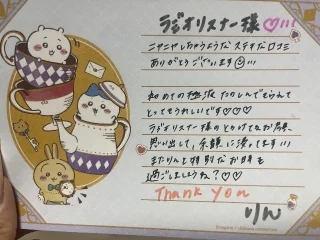 ラジオリスナー様♡!!!
ニヤニヤしちゃうような ステキな口コミ
ありがとうございます!!!
初めての極液 たのしんでもらえて
とってもうれしいです♡♡♡
ラジオリスナー様の
思い出して、余韻に浸ってます!!!
またりんと特別なお時間
過ごしましょうね?♡♡
Thank you
りん